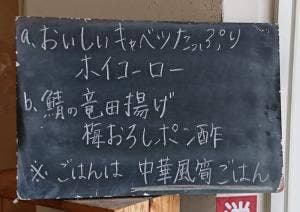 a、おいしいキャベツたっぷり
ホイコーロー
b、鯖の竜田揚げ
梅おろしポン酢
※ごはんは 中華風筍ごはん
消